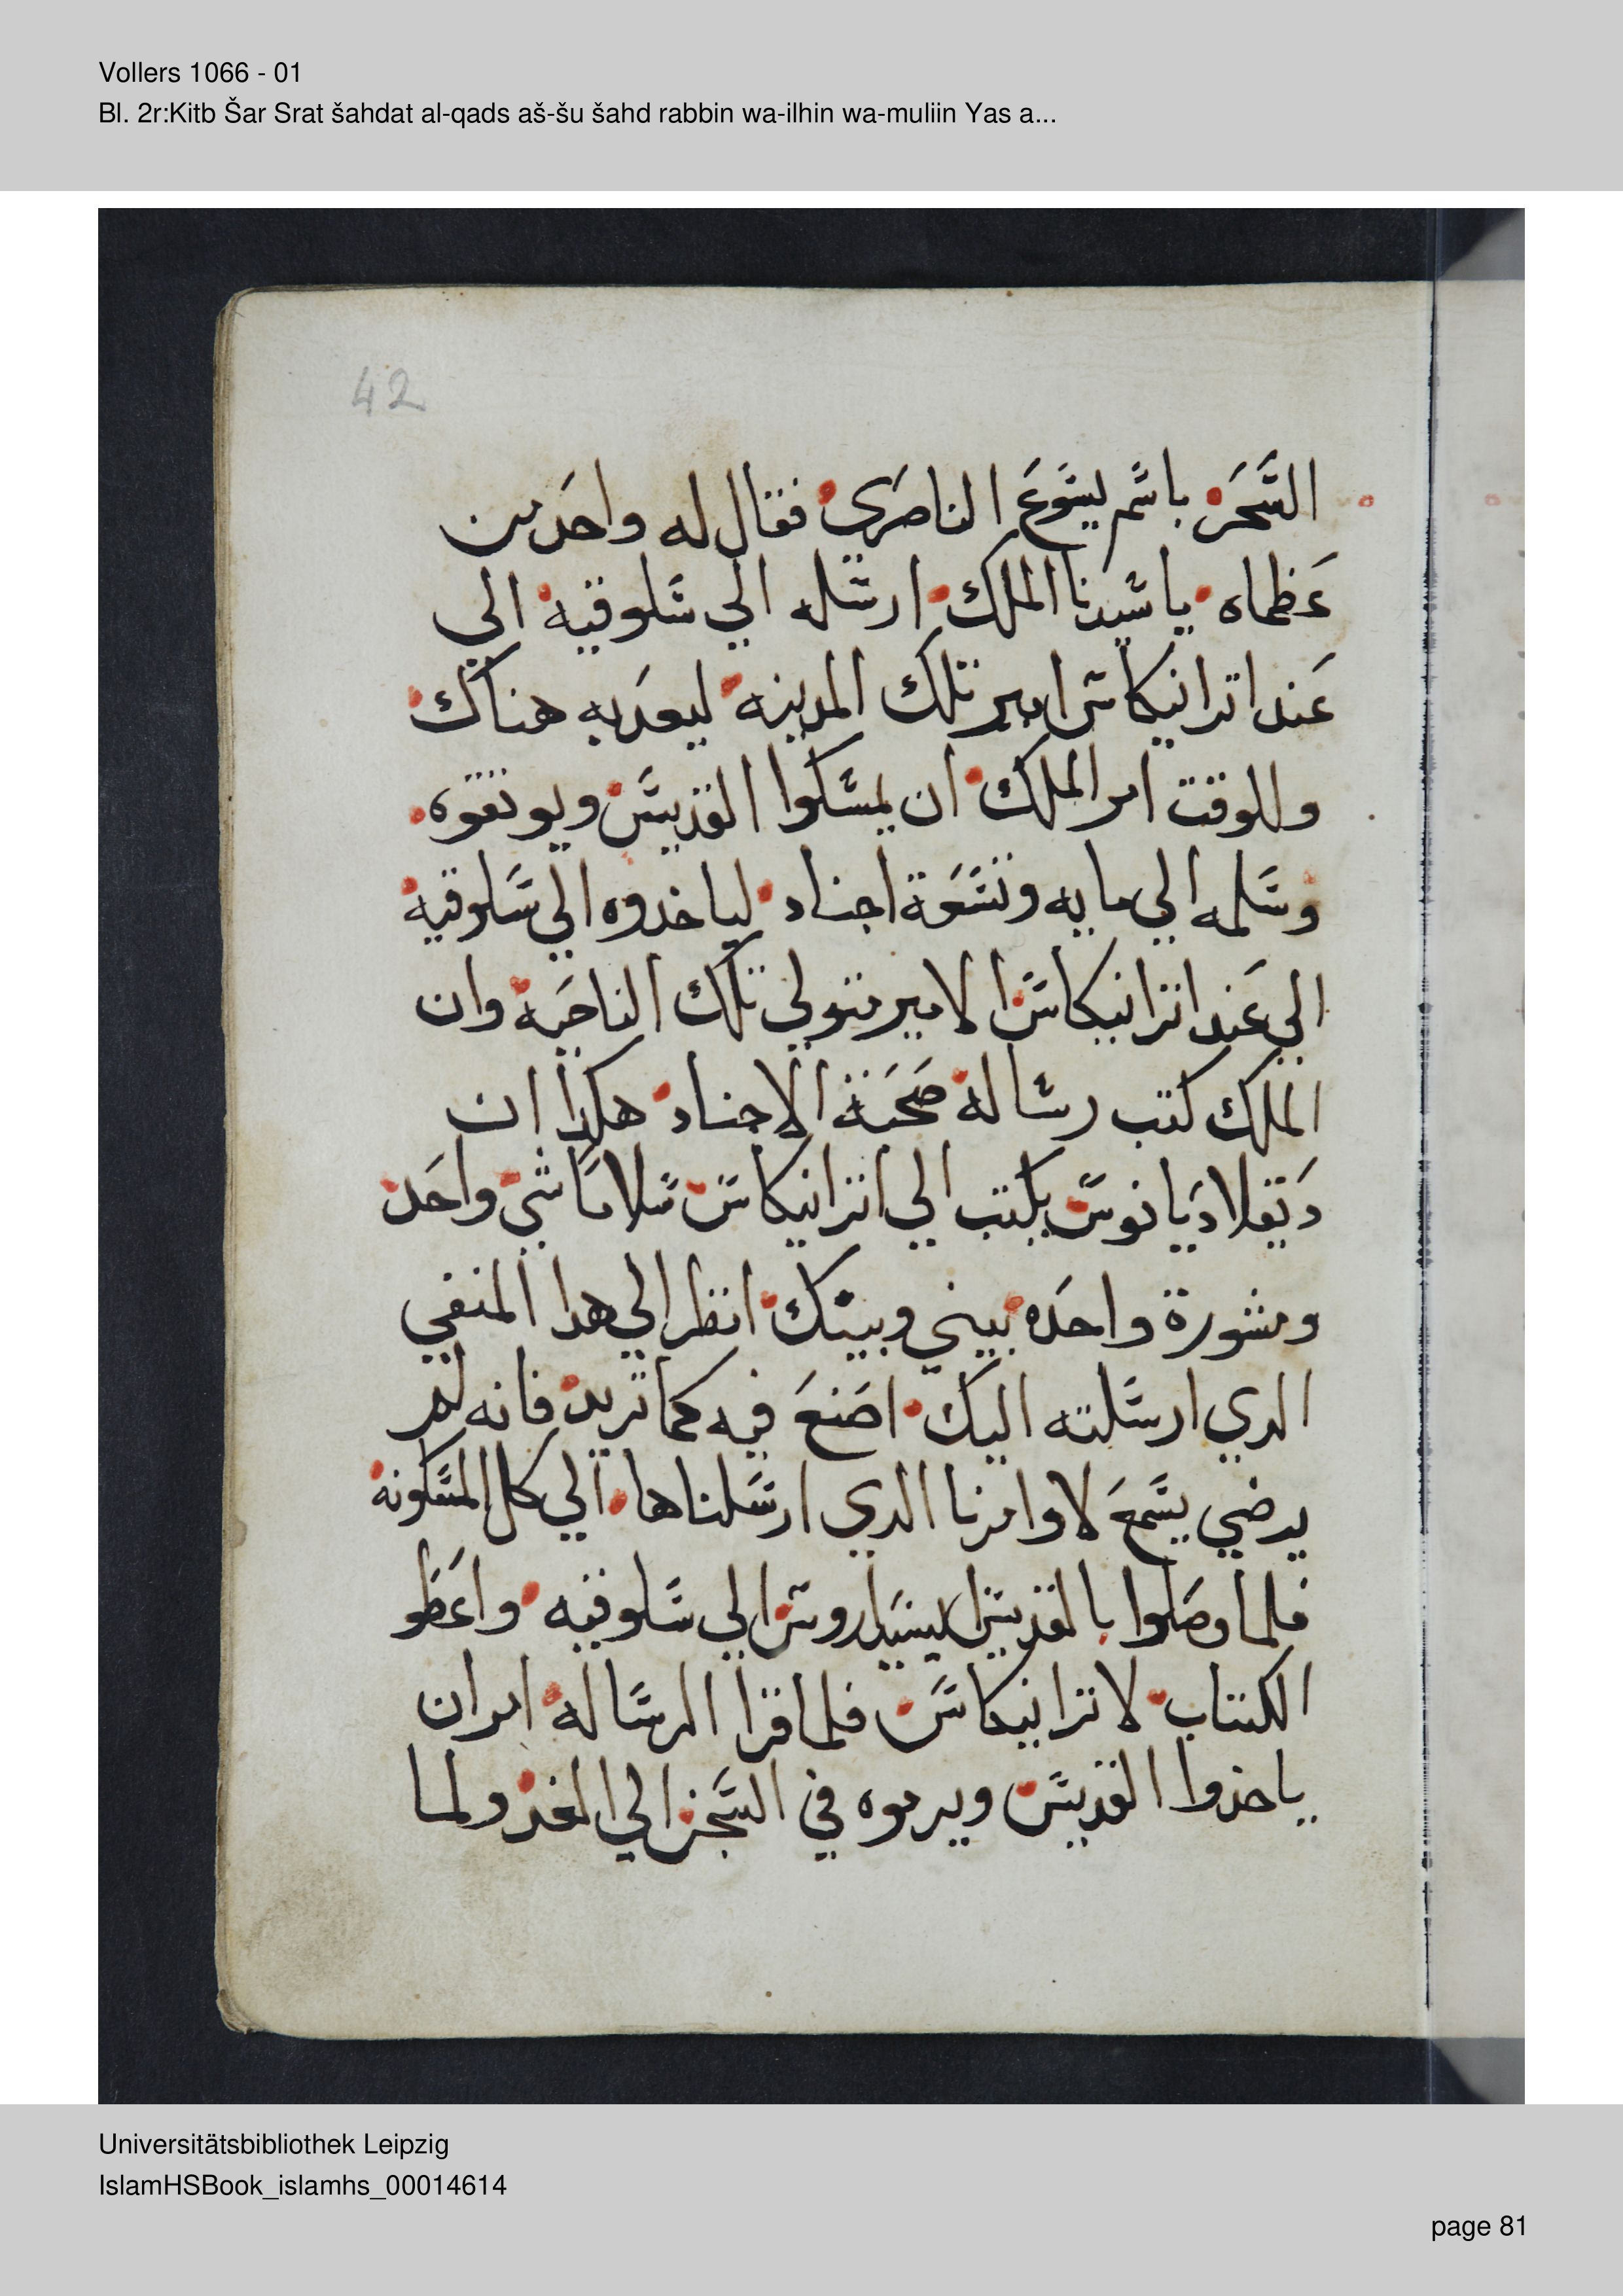 Vollers 1066 - 01
Bl. 2r:Kitb Šar Srat šahdat al-qads aš-šu šahd rabbin wa-ilhin wa-muliin Yas a...
42
السحر باسم يسوع الناصري فقال له واحد من
عظماه يا سيدنا الملك ارسله الي سلوقيه الي
عند اترانيكاس امير تلك المدينه ليعدبه هناك
وللوقت امر الملك ان يمسكوا القديس ويوثقوه
وسلمه الي مايه وتسعة اجناد لياخدوه الي سلوقيه
الي عند اترانيكاس الامير متولي تلك الناحيه وان
الملك كتب رساله صحبة الاجناد هكذا ان
دتقلاديانوس يكتب الي اترانيكاس سلاما شي واحد
ومشورة واحده بيني وبينك انظر الي هدا المنفي
الدي ارسلته اليك اصنع فيه كما تريد فانه لم
يرضي يسمع لاوامرنا الدي ارسلناها الي كل المسكونه
فلما وصلوا بالقديس ليسياروس الي سلوقيه واعطو
الكتاب لاترانيكاس فلما قرا الرساله امر ان
ياخذوا القديس ويرموه في السجن الي الغد ولما
Universitätsbibliothek Leipzig
IslamHSBook_islamhs_00014614
page 81